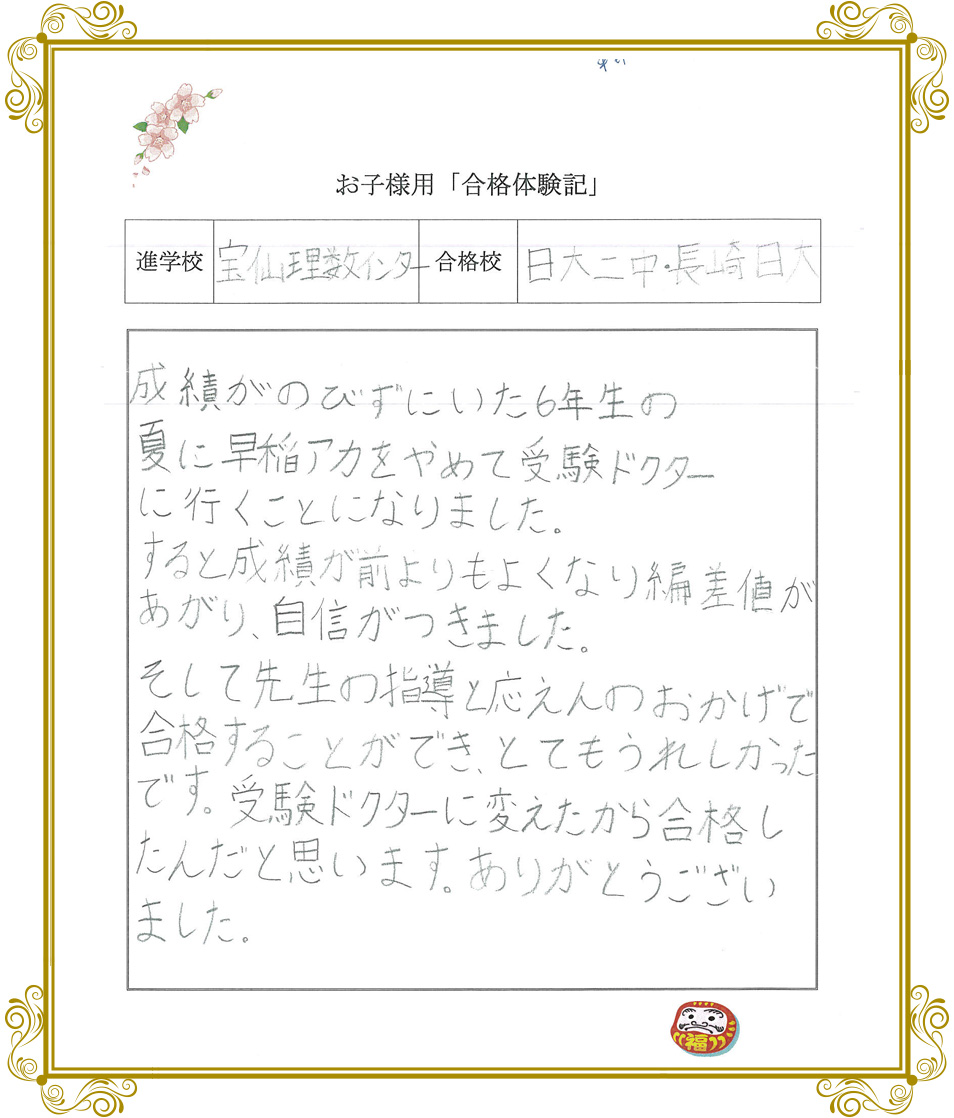 お子様用「合格体験記」
進学校 宝仙理数インター 合格校 日大二中・長崎日大
成績がのびずにいた6年生の
夏に早稲アカをやめて受験ドクター
に行くことになりました。
すると成績が前よりもよくなり編差値が
あがり、自信がつきました。
そして先生の指導と応えんのおかげで
合格することができ、とてもうれしかった
です。受験ドクターに変えたから合格し
たんだと思います。ありがとうござい
ました。
福